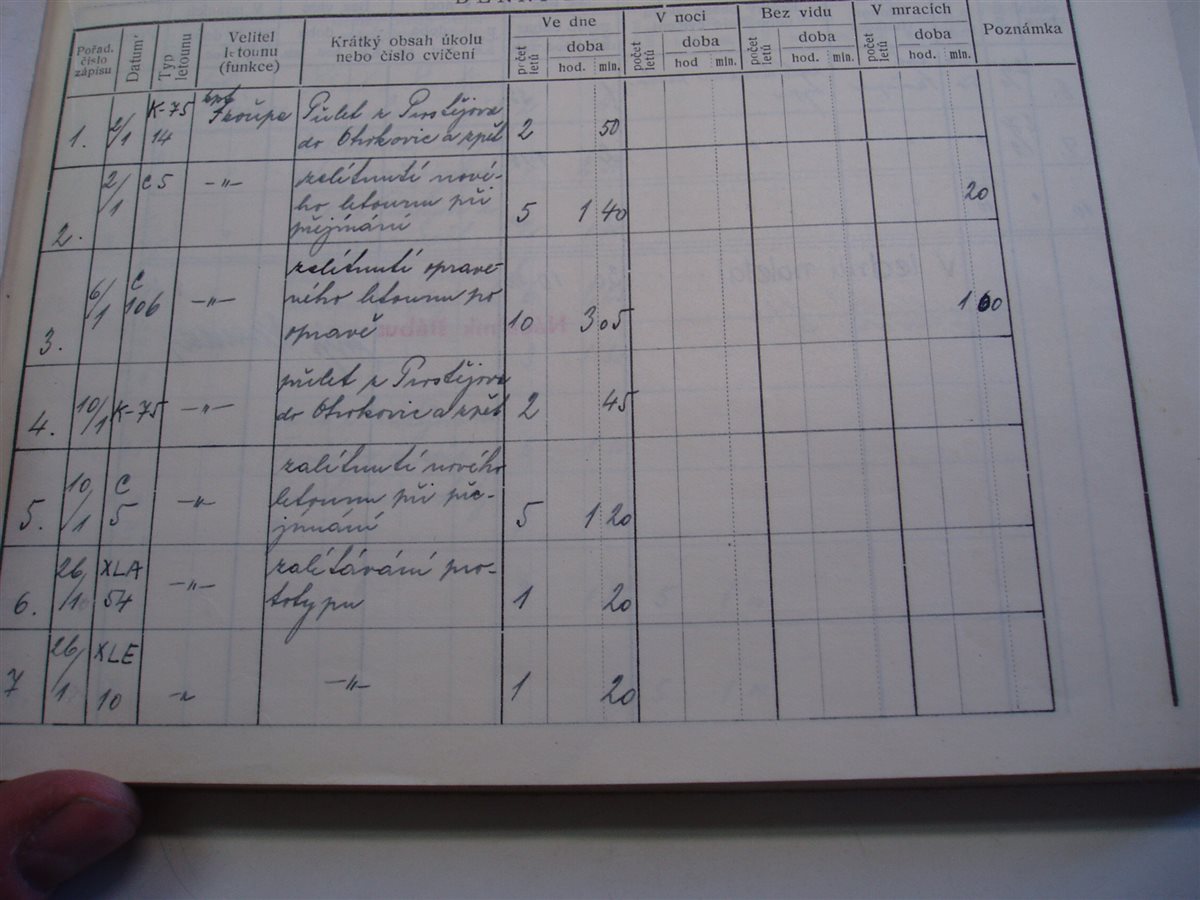 Ve dne V noci Bez vidu V mracích
Pořad. číslo zápisu Datum Typ letounu Velitel letounu (funkce) Krátký obsah úkolu nebo číslo cvičení počet letů doba hod. min. počet letů doba hod min. počet letů doba hod. min. počet letů doba hod. min. Poznámka
1. 2/1 K-75 14 Přelet z Prostějova 2 50
do Otrokovic a zpět
2. 2/1 C5 -"- zalítnutí nové- 5 1 40 20
ho letounu při
přejímání
3. 6/1 C 106 -"- zalítnutí opravě- 10 3 05 1 00
ného letounu po
opravě
4. 10/1 K-75 -"- přelet z Prostějova 2 45
do Otrokovic a zpět
5. 10/1 C 5 -"- zalítnutí nového 5 1 20
letounu při pře-
jímání
6. 26/1 XLA 54 -"- zalétávání pro- 1 20
totypu
7 26/1 XLE 10 -"- -"- 1 20